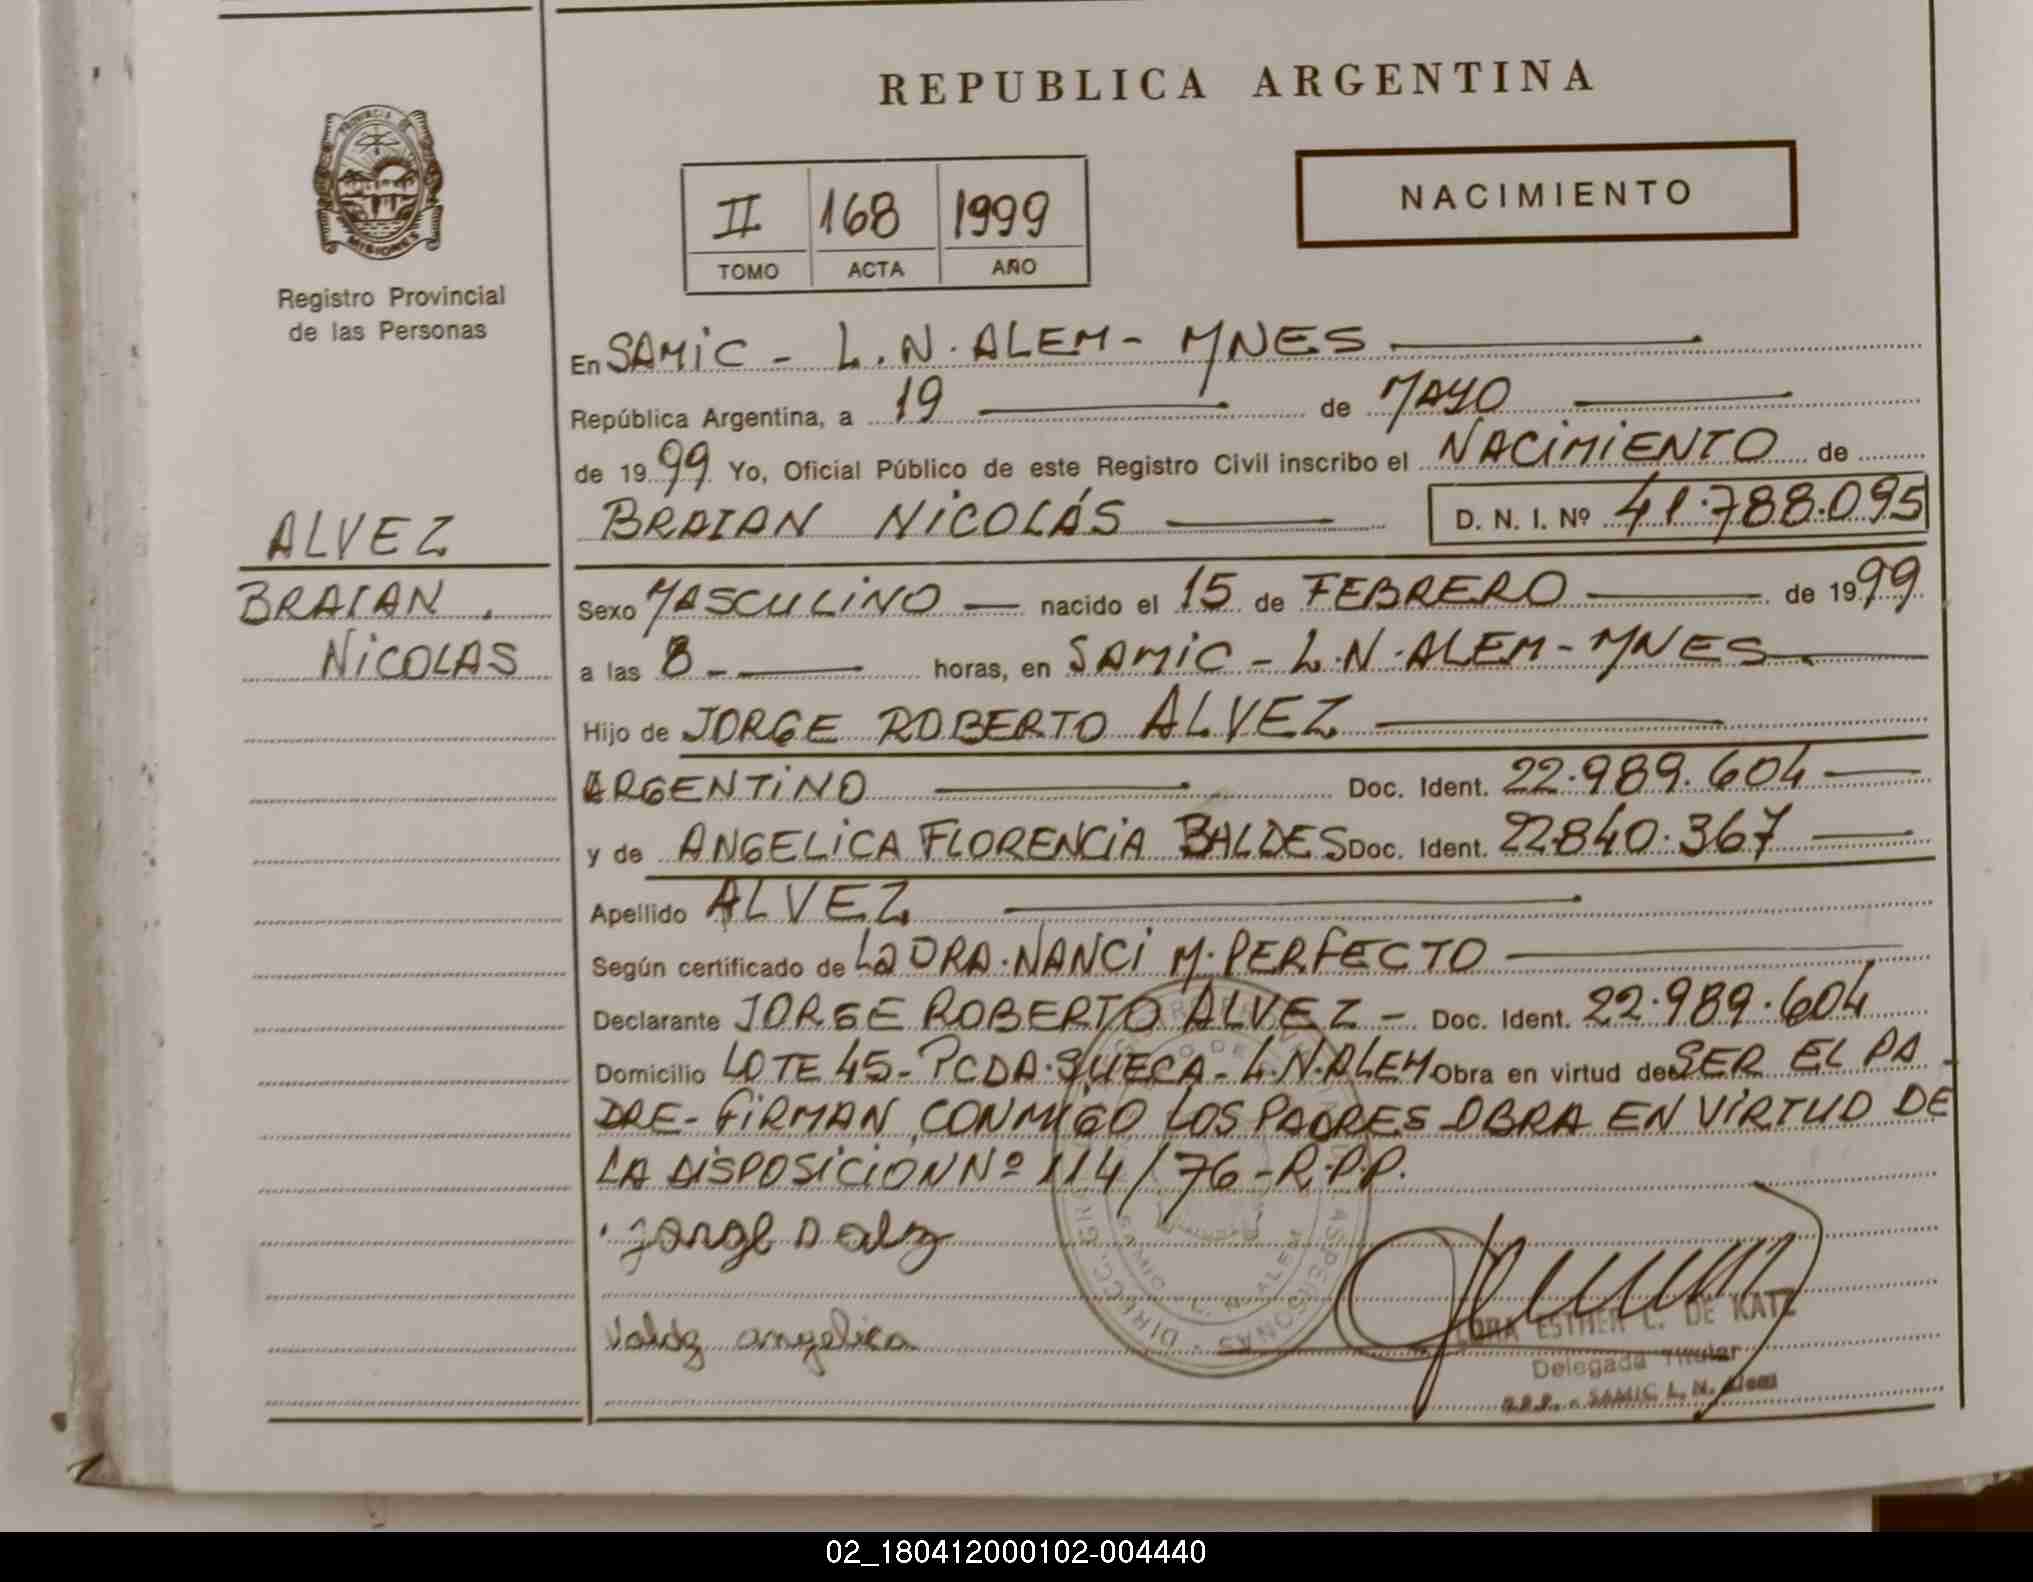 REPUBLICA ARGENTINA
PROVINCIA DE
MISIONES
Registro Provincial
de las Personas
NACIMIENTO
II 168 1999
TOMO ACTA AÑO
En SAMIC - L.N. ALEM - MNES
República Argentina, a 19 de MAYO
de 1999 Yo, Oficial Público de este Registro Civil inscribo el NACIMIENTO de
BRAIAN NICOLÁS D. N. I. Nº 41.788.095
ALVEZ
BRAIAN
NICOLAS
Sexo MASCULINO nacido el 15 de FEBRERO de 1999
a las 8 - horas, en SAMIC - L.N. ALEM - MNES
Hijo de JORGE ROBERTO ALVEZ
ARGENTINO Doc. Ident. 22.989.604
y de ANGELICA FLORENCIA BALDES Doc. Ident. 22840.367
Apellido ALVEZ
Según certificado de La DRA. NANCI M. PERFECTO
Declarante JORGE ROBERTO ALVEZ - Doc. Ident. 22.989.604
Domicilio LOTE 45 - PCDA. SUECA - L.N. ALEM Obra en virtud de SER EL PA-
DRE - FIRMAN CONMIGO LOS PADRES OBRA EN VIRTUD DE
LA DISPOSICION Nº 114/76 - R.P.P.
angelica
ESTHER C. DE KATZ
Delegada Titular
R.P.P. - SAMIC L. N. Alem
L. N. ALEM
02_180412000102-004440